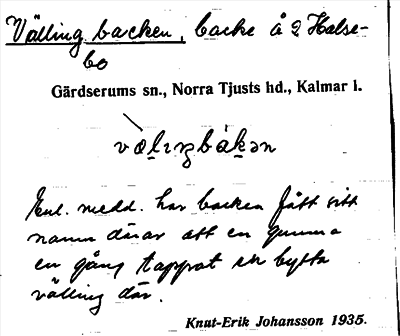 Vällingbacken, backe å 2 Halse-
bo
Gärdserums sn., Norra Tjusts hd., Kalmar l.
Enl. medd. har backen fått sitt
namn därav att en gumma
en gång tappat en bytta
välling där.
Knut-Erik Johansson 1935.